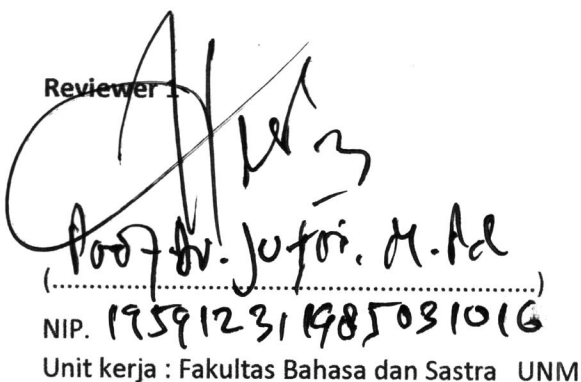 Reviewer 1
Prof. Dr. Jufri, M.Pd
(........................................................................)
NIP. 195912311985031016
Unit kerja : Fakultas Bahasa dan Sastra UNM